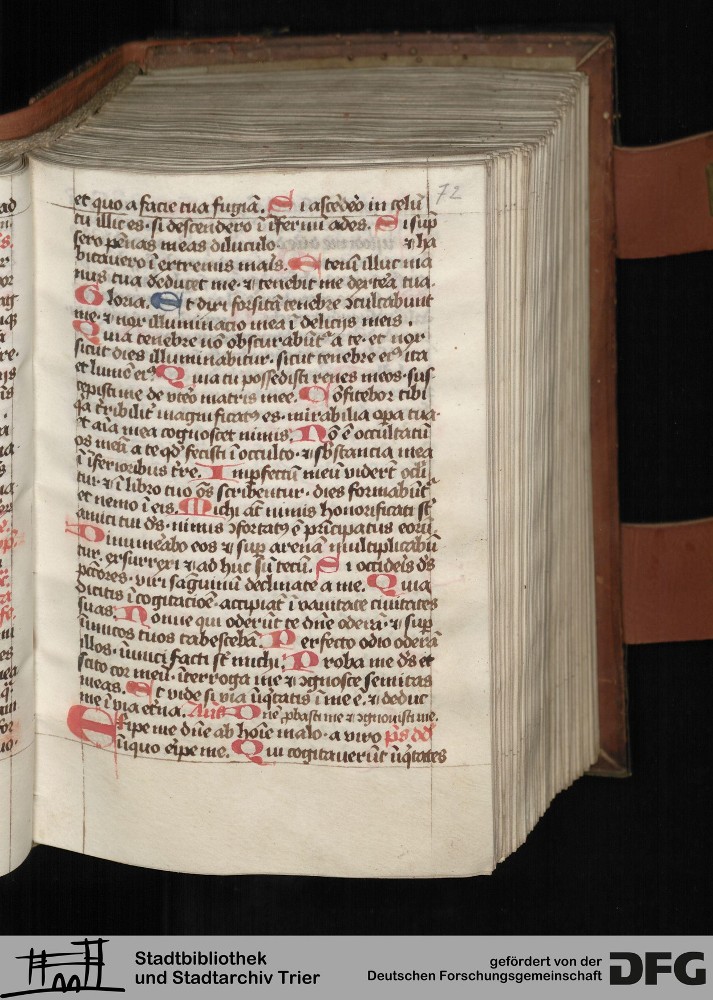 72
et quo a facie tua fugiā. Si ascēdero in celū
tu illic es. si descendero ī īfernū ades. Si sūp
sero pennas meas diluculo & ha
bitavero ī extremis maris. Etenī illuc ma
nus tua deducet me. & tenebit me dextera tua.
Gloria. Et dixi forsitā tenebre ɔculcabunt
me. & nox illuminacio mea ī delicijs meis.
Quia tenebre nō obscurabūt̃ a te. et nox
sicut dies illuminabitur. sicut tenebre eiꝰ ita
et lumē eiꝰ. Quia tu possedisti renes meos. sus
cepisti me de vtēo matris mee. Cōfitebor tibi
q̄a tribilit̃ magnificatꝰ es. mirabilia oꝑa tua.
et aīa mea cognoscet nimis. Nō ē occultatū
os meū a te qđ fecisti ī occulto. & sbstancia mea
ī īferioribus tr̃e. Impfectū meū viderūt oculi
tui. & ī libro tuo ōs scribentur. dies formabūt̃
et nemo ī eis. Michi aūt nimis honorificati st̄
amici tui ds̄. nimis ɔfortatꝰ ē principatus eorū.
Dinumēabo eos & suꝑ arenā multiplicabū
tur. exsurrexi & adhuc sū tecū. Si occideris ds̄
pctōres. viri sāguinū declinate a me. Quia
dicitis ī cogitacioē. accipiāt ī vanitate civitates
suas. Nonne qui oderūt te dn̄e oderā. & suꝑ
inimicos tuos tabescebā. Perfecto odio oderā
illos. inimici facti st̄ michi. Proba me ds̄ et
scito cor meū. īterroga me & ɔgnosce semitas
meas. Et vide si via īiq̄tatis ī me ē. & deduc
me ī via et̃na. Ant̄ Dn̄e ꝓbasti me & ɔgnovisti me.
Eripe me dn̄e ab hōīe malo. a viro p̄s dđ
iniquo eripe me. Qui cogitaverūt īiq̄tates
Stadtbibliothek
und Stadtarchiv Trier
gefördert von der
Deutschen Forschungsgemeinschaft
DFG